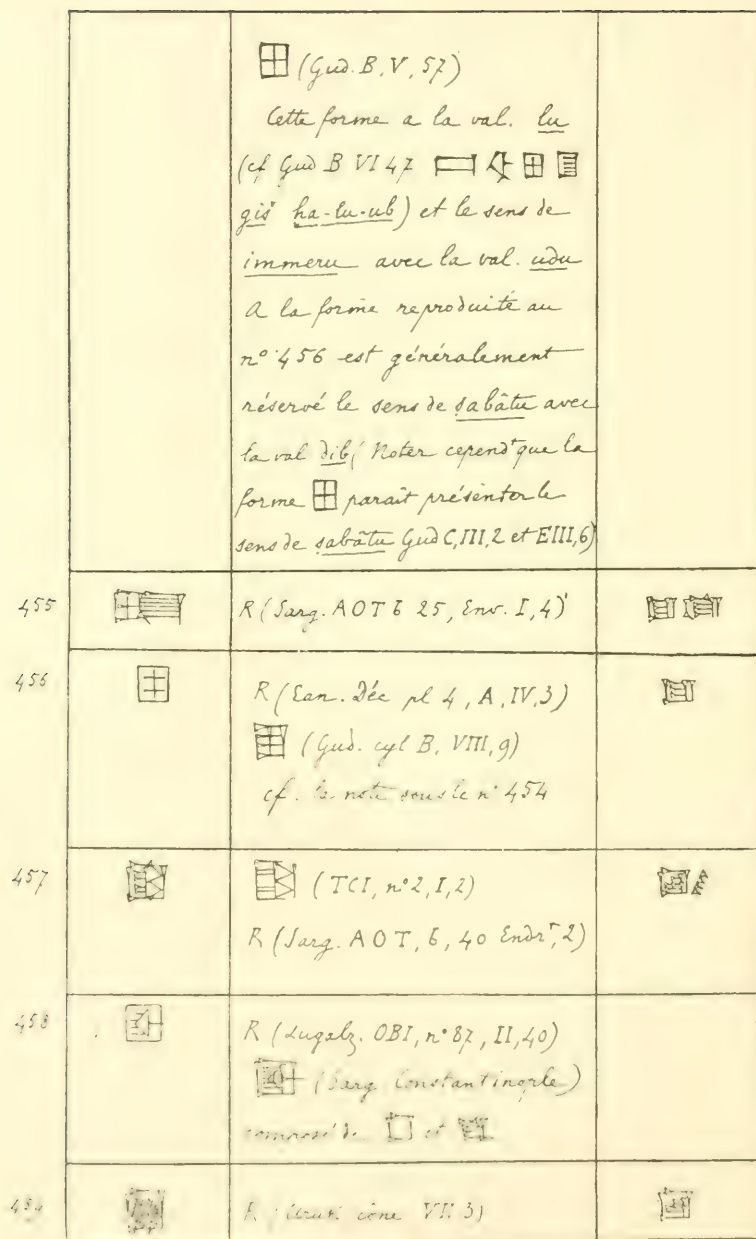 (Gud. B, V, 57)
Cette forme a la val. lu
(cf Gud B VI 47
giš ha-lu-ub) et le sens de
immeru avec la val. udu
A la forme reproduite au
n° 456 est généralement
réservé le sens de sabâtu avec
la val dib, Noter cependt que la
forme 田 parait présenter le
sens de sabâtu Gud C, III, 2 et E III, 6)
455 R (Sarg. AOT 6 25, Env. I, 4)
456 R (Ean. Déc pl 4, A, IV, 3)
(Gud. cyl B, VIII, 9)
cf. la note sous le n° 454
457 (TCI, n° 2, I, 2)
R (Sarg. AOT, 6, 40 Endrt, 2)
458 R (Lugalz. OBI, n° 87, II, 40)
(Sarg Constantinople)
composé de et
R (Uruk. cône VII 3)